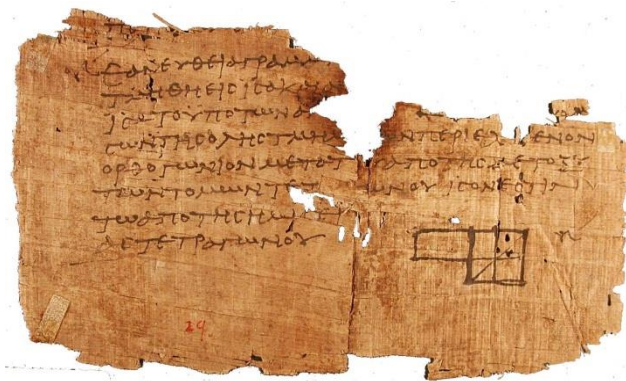 ΕΑΝΕΥΘΕΙΑΓΡΑΜΜ
ΤΜΗΘΗΕΙϹΙϹΑΚΑΙ
ΙϹΑΤΟΥΠΟΤΩΝΑ
ϹΩΝΤΗϹΟΛΗϹΤΜΗ ΩΝΠΕΡΙΕΧ ΜΕΝΟΝ
ΟΡΘΟΓΩΝΙΟΝΜΕΤΑΤ ΑΠΟΤΗϹΜΕΤΟΞΥ
ΤΩΝΤΟΜΩΝΤΕΤ ΓΩΝΟΥΙϹΟΝΕϹΤΙΝ
ΤΩΑΠΟΤΗϹΗΜΙϹΕΙ
ΑϹΤΕΤΡΑΓΩΝΟΥ
29